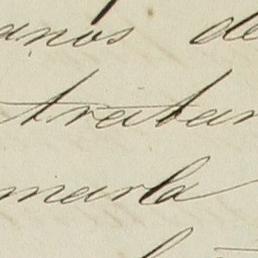 anos de
tratar
marla